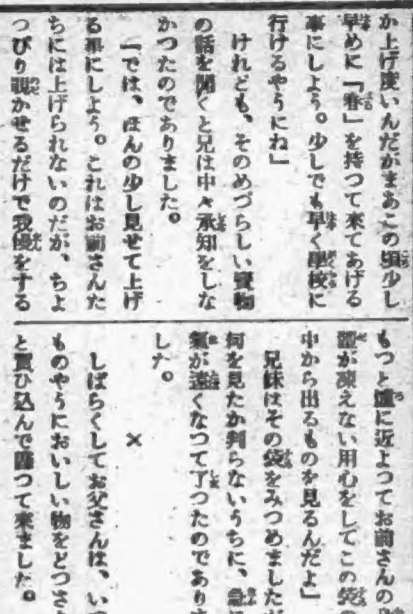 か上げ度いんだがまあこの頃少し
早めに「春」を持つて来てあげる
事にしよう。少しでも早く學校に
行けるやうにね」
けれども、そのめづらしい寶物
の話を聞くと兄は中々承知をしな
かつたのでありました。
「では、ほんの少し見せて上げ
る事にしよう。これはお前さんた
ちには上げられないのだが、ちよ
つぴり覗かせるだけで我慢をする
もつと爐に近よつてお前さんの
體が凍えない用心をしてこの袋
中から出るものを見るんだよ」
兄妹はその袋をみつめました
何を見たか判らないうちに、急に
氣が遠くなつて了つたのであり
した。
×
しばらくしてお父さんは、いつ
ものやうにおいしい物をどつさ
と買ひ込んで歸つて來ました。